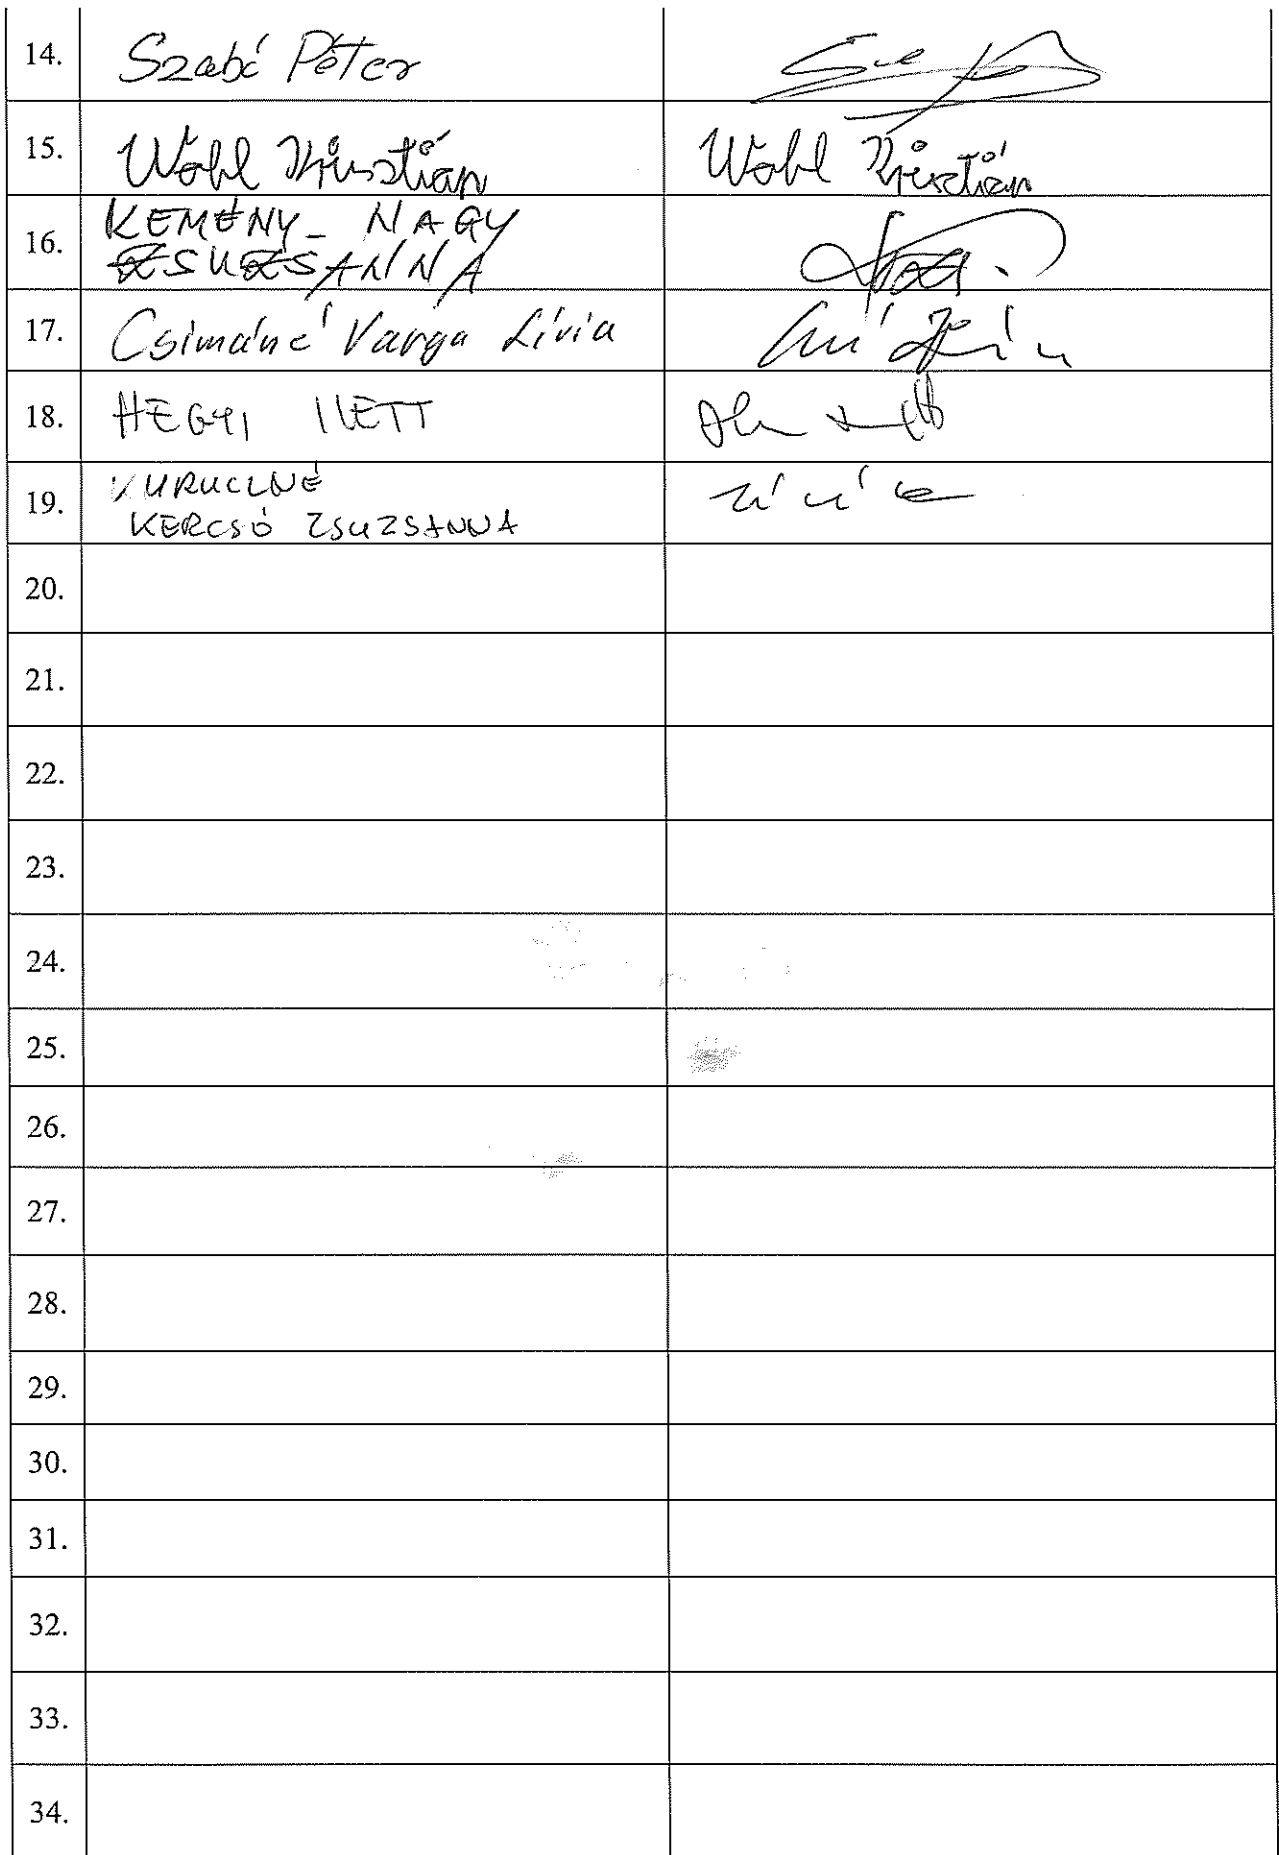 14. Szabó Péter
15. Wohl Krisztián Wohl Krisztián
16. KEMÉNY-NAGY
ZSUZSANNA
17. Csimáné Varga Lívia
18. HEGYI
19. KURUCZNÉ
KERCSÓ ZSUZSANNA
20.
21.
22.
23.
24.
25.
26.
27.
28.
29.
30.
31.
32.
33.
34.